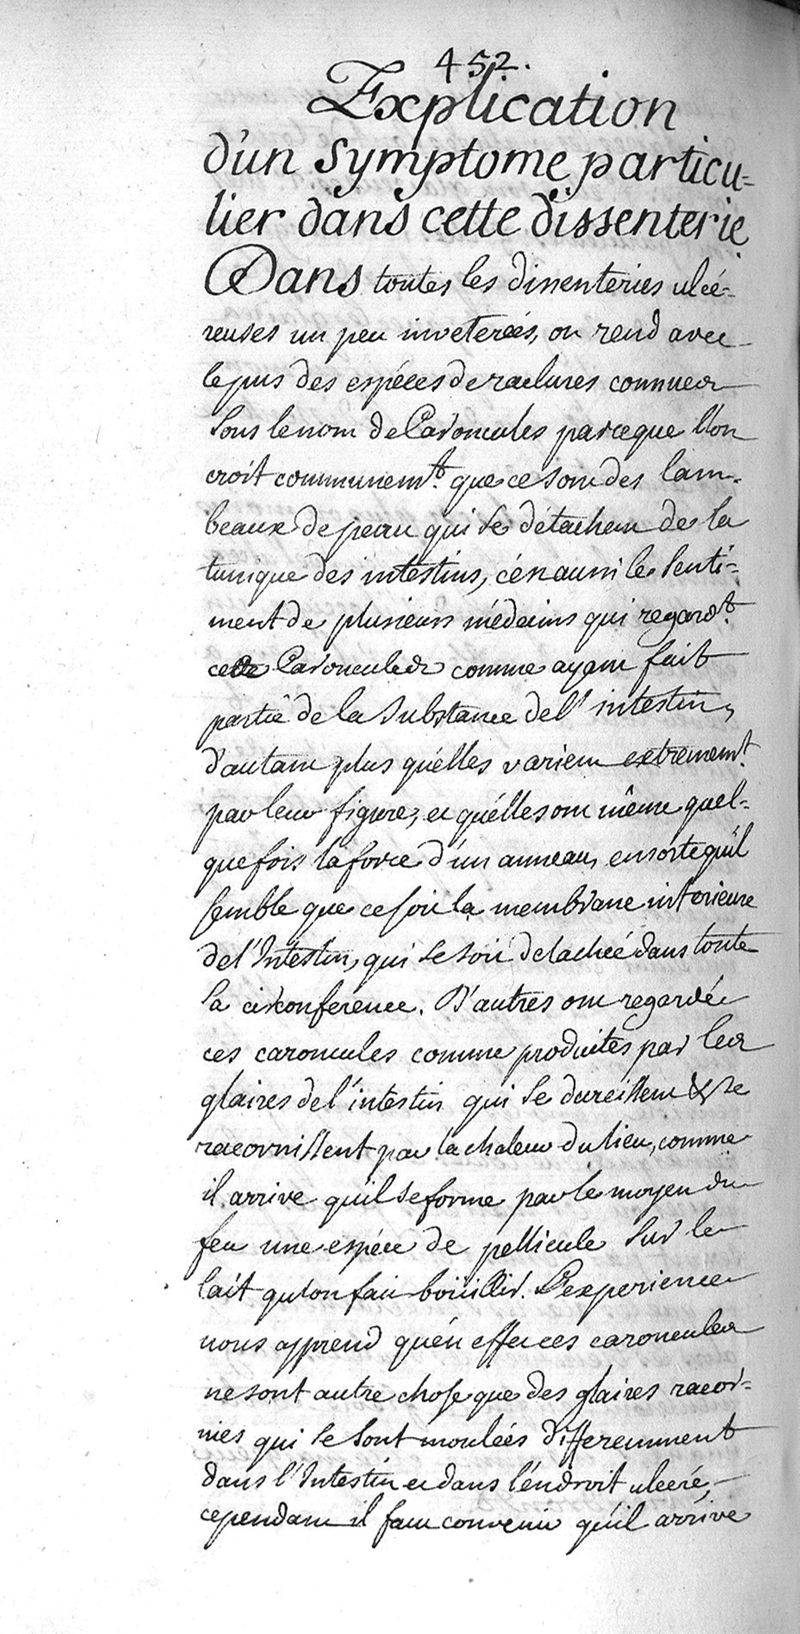 452.
Explication
d'un Symptome particu-
lier dans cette dissenterie
Dans toutes les dissenteries ulcé-
reuses un peu inveterées, on rend avec
le pus des espéces de raclures connues
sous le nom de Caroncules parceque l'on
croit communemt. que ce sont des lam-
beaux de peau qui se détachent de la
tunique des intestins, c'ést aussi le senti-
ment de plusieurs médecins qui regardt.
cette Caroncules comme ayant fait
partie de la substance de l'intestin,
d'autant plus qu'elles varient extrememt.
par leur figure, et qu'élles ont même quel-
quefois la force d'un anneau, ensorte qu'il
semble que ce soit la membrane interieure
de l'Intestin, qui se soit detachée dans toute
sa circonference. D'autres ont regardé
ces caroncules comme produites par les
glaires de l'intestin qui se durcissent & se
racornissent par la chaleur du lieu, comme
il arrive qu'il se forme par le moyen du
feu une espéce de pellicule sur le
lait qu'on fait boüillir. L'experience
nous apprend qu'én effet ces caroncules
ne sont autre chose que des glaires racor-
nies qui se sont moulées differemment
dans l'Intestin et dans l'éndroit ulceré,
cependant il faut convenir qu'il arrive